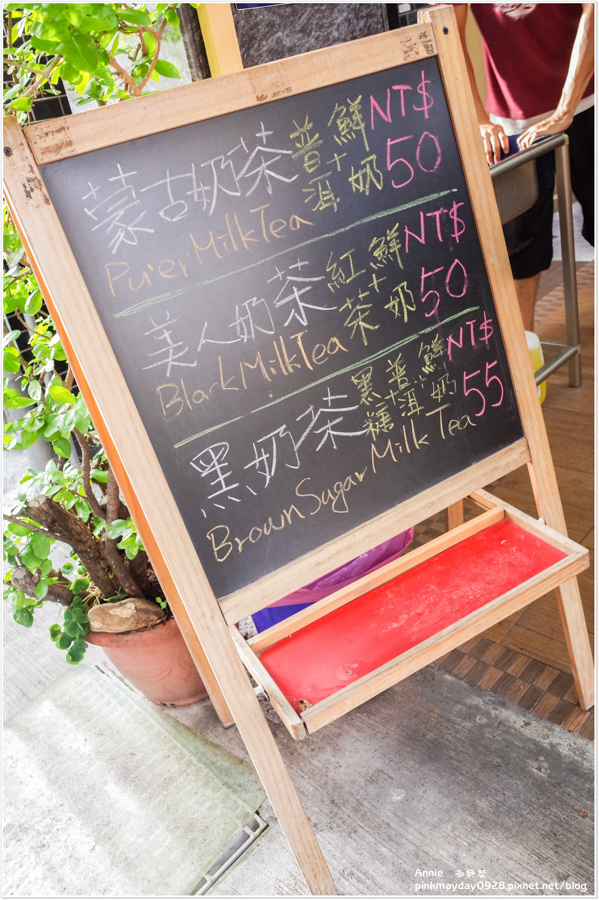 蒙古奶茶 普洱+鮮奶 NT$50
Pu'er Milk Tea
美人奶茶 紅茶+鮮奶 NT$50
Blark Milk Tea
黑奶茶 黑糖+普洱+鮮奶 NT$55
Brown Sugar Milk Tea
Annie
pinkmayday0928.pixnet.net/blog